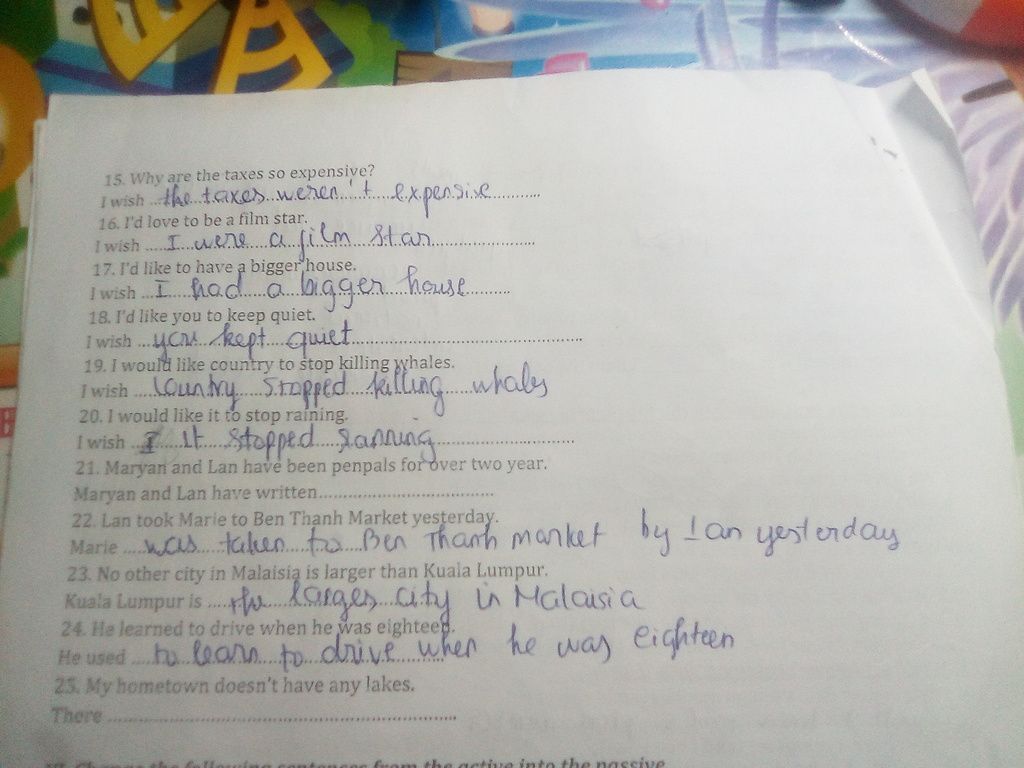 15. Why are the taxes so expensive?
I wish ...the taxes weren't expensive...
16. I'd love to be a film star.
I wish ....I were a film star...
17. I'd like to have a bigger house.
I wish ...I had a bigger house...
18. I'd like you to keep quiet.
I wish ...you kept quiet...
19. I would like country to stop killing whales.
I wish ...country stopped killing whales
20. I would like it to stop raining.
I wish ...I it stopped ranning...
21. Maryan and Lan have been penpals for over two year.
Maryan and Lan have written...
22. Lan took Marie to Ben Thanh Market yesterday.
Marie ...was taken to Ben Thanh market by Lan yesterday
23. No other city in Malaisia is larger than Kuala Lumpur.
Kuala Lumpur is ...the larges city in Malaisia
24. He learned to drive when he was eighteen.
He used ...to learn to drive when he was eighteen
25. My hometown doesn't have any lakes.
There ...
Change the following sentences from the active into the passive